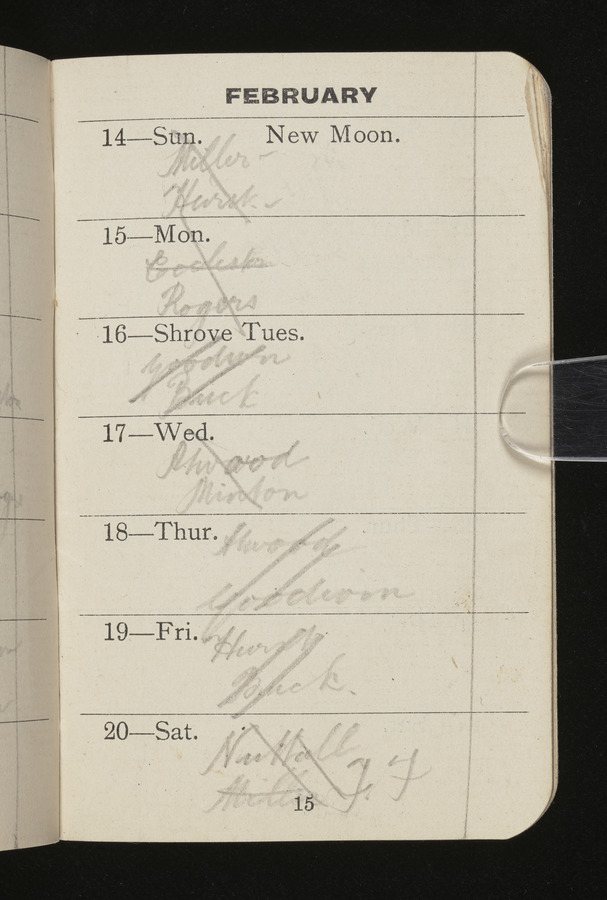 FEBRUARY
14—Sun. New Moon.
Miller
Hurst
15—Mon.
Rogers
16—Shrove Tues.
Goodwin
Buck
17—Wed.
Atwood
Minton
18—Thur. Atwood
Goodwin
19—Fri. Hurst
Buck.
20—Sat.
Nuttall
15